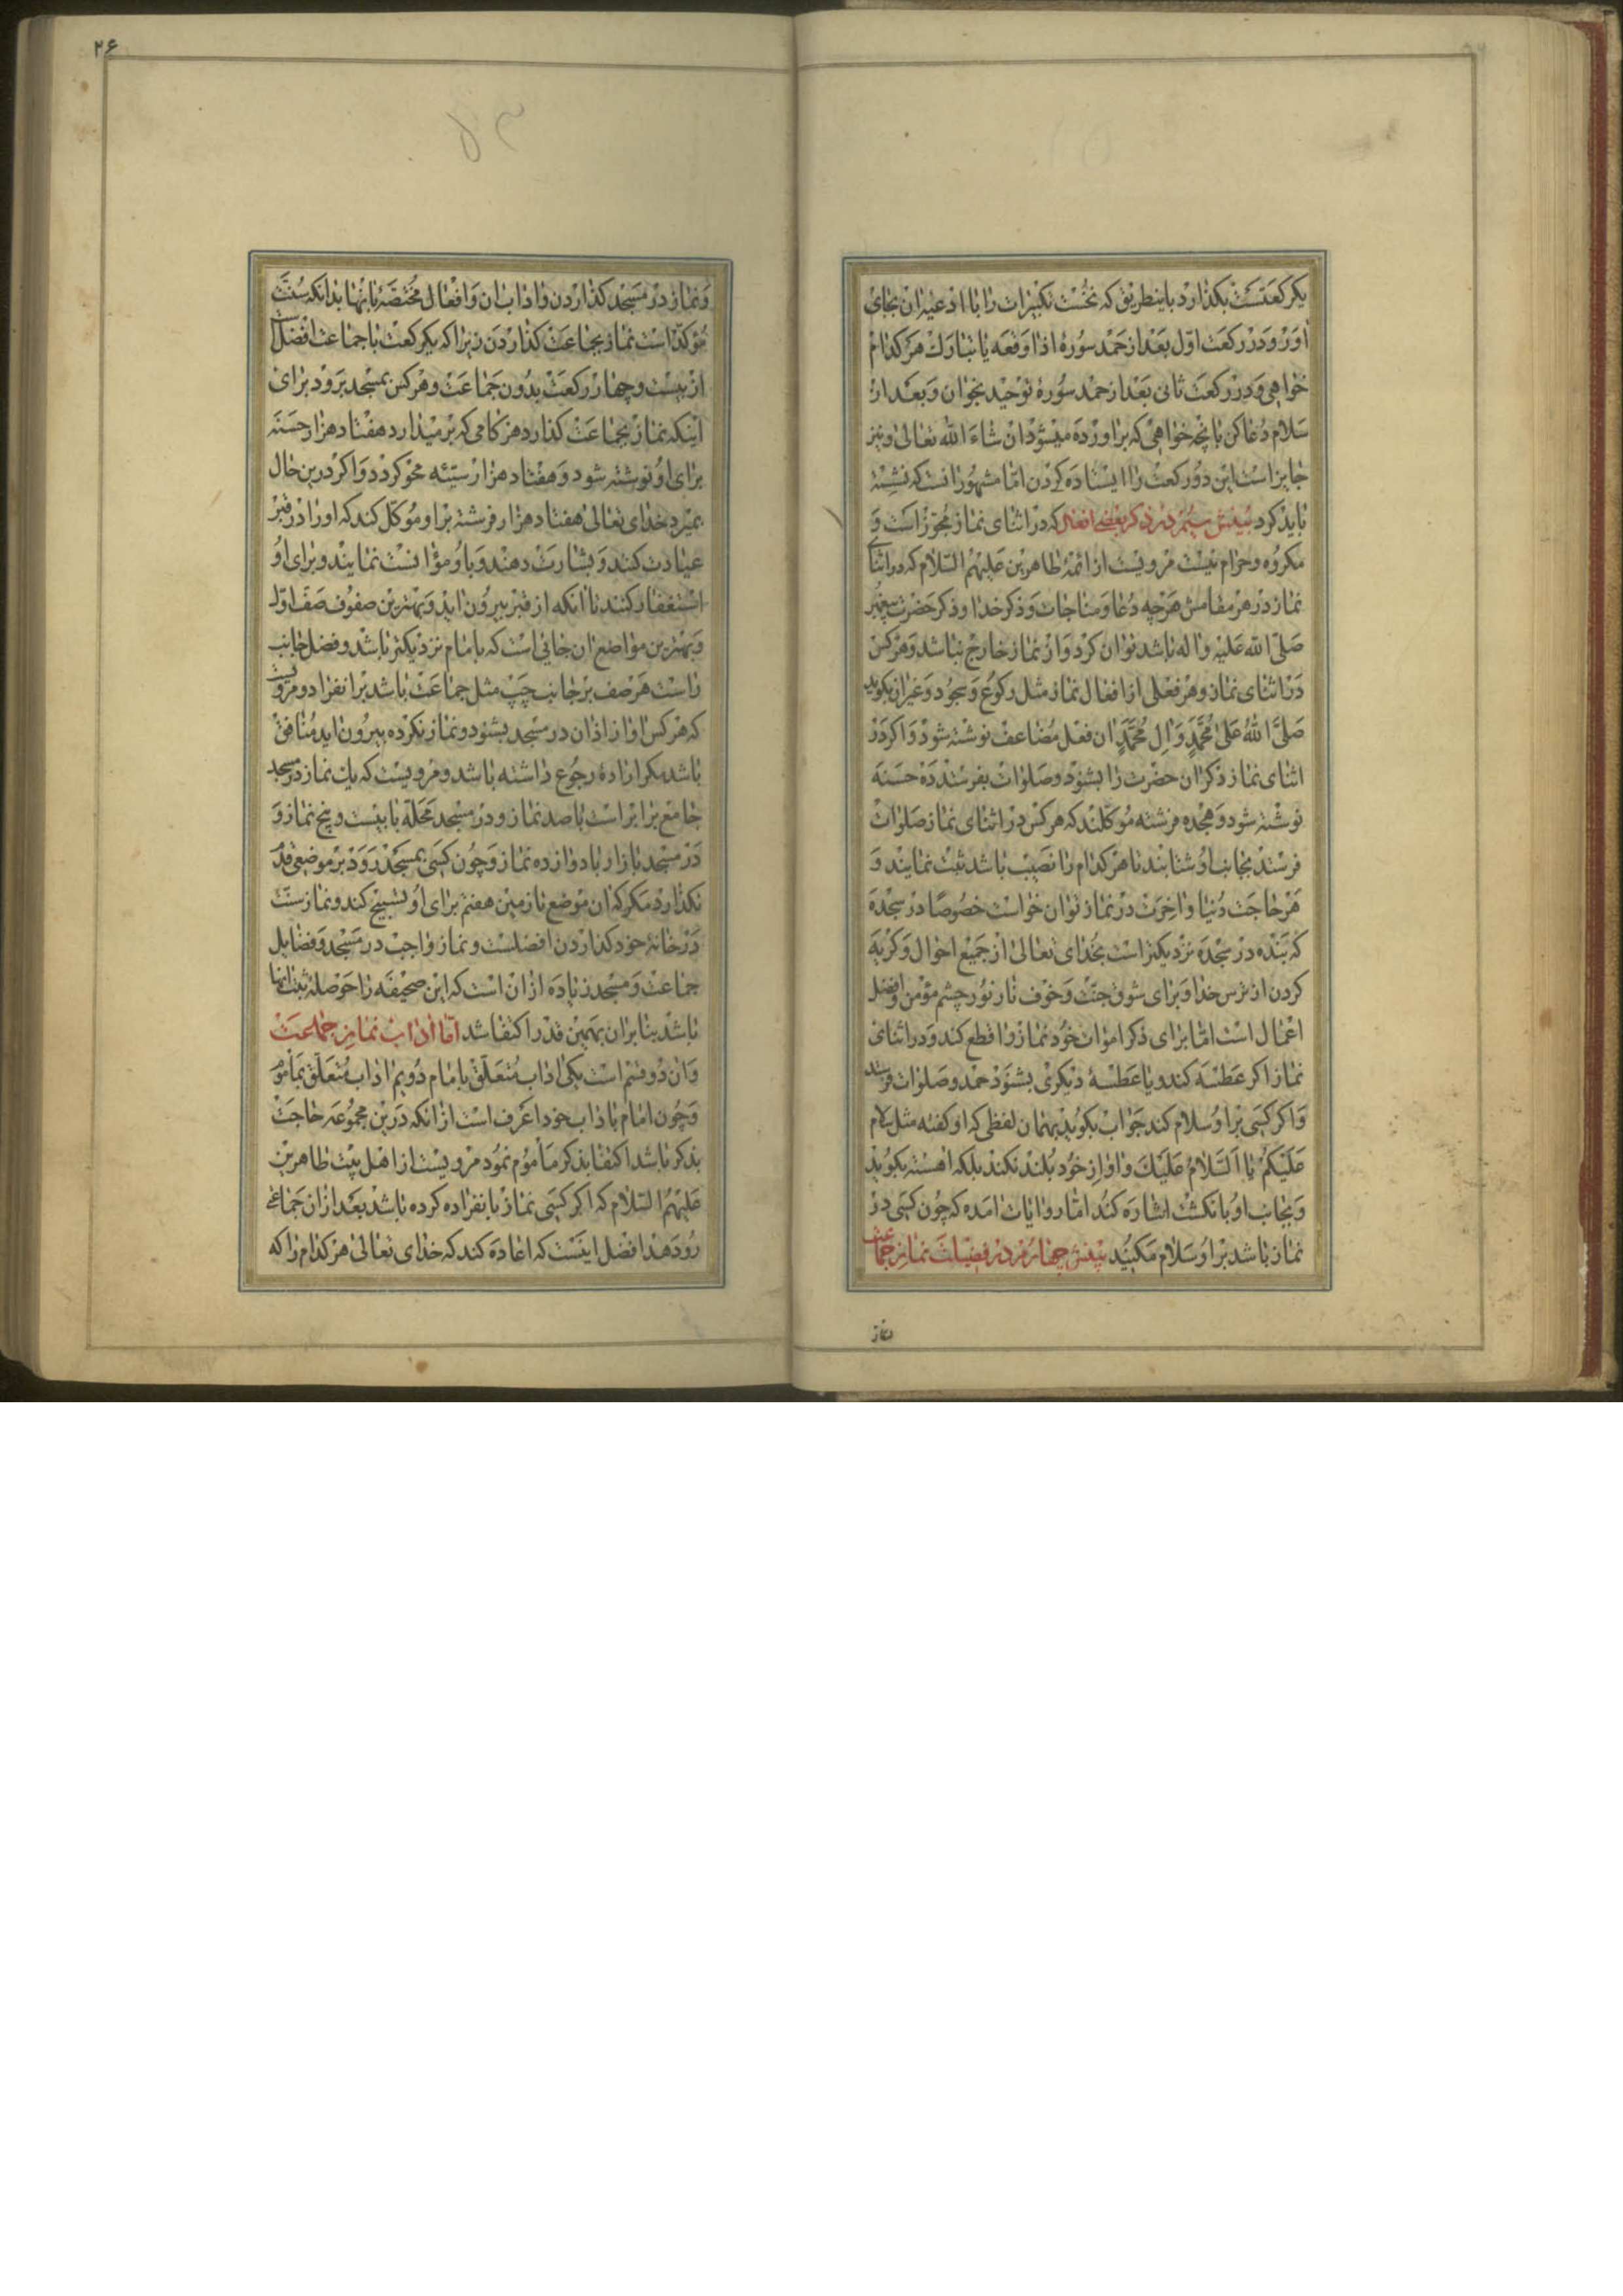 یکرکعتست بکذارد باینطریق که نخست تکبیرات را با ادعیهٔ ان بجای
اورد و در رکعت اوّل بعد از حمد سورهٔ اذا وقعه یا تبارک هر کدام
خواهی و در رکعت ثانی بعد از حمد سورهٔ توحید بخوان و بعد از
سلام دعا کن بانچه خواهی که براورده میشود ان شاء الله تعالی و نیز
جایز است این دو رکعت را ایستاده کردن امّا مشهور انست که نشسته
باید کرد بینش سیّم در ذکر بعضی افعال که در اثنای نماز مجوّز است و
مکروه و حرام نیست مرویست از ائمّهٔ طاهرین علیهم السّلام که در اثنای
نماز در هر مقامش هرچه دعا و مناجات و ذکر خدا و ذکر حضرت پیغمبر
صلّی الله علیه و اله باشد توان کرد و از نماز خارج نباشد و هر کس
در اثنای نماز و هر فعلی از افعال نماز مثل رکوع و سجود و غیر ان بکوید
صلّی الله علی محمّد و ال محمّد ان فعل مضاعف نوشته شود و اکر در
اثنای نماز ذکر ان حضرت را بشنود و صلوات بفرستد ده حسنه
نوشته شود و هجده فرشته موکلند که هر کس در اثنای نماز صلوات
فرستد بجانب او شتابند تا هر کدام را نصیب باشد ثبت نمایند و
هر حاجت دنیا و اخرت در نماز توان خواست خصوصًا در سجده
که بنده در سجده نزدیکتر است بخدای تعالی از جمیع احوال و کریه
کردن از ترس خدا و برای شوق جنّت و خوف نار نور چشم مؤمن و افضل
اعمال است امّا برای ذکر اموات خود نماز را قطع کند و در اثنای
نماز اکر عطسه کند و یا عطسهٔ دیکری بشنود حمد و صلوات فرستد
و اکر کسی بر او سلام کند جواب بکوید بهمان لفظی که او کفته مثل سلام
علیکم یا السّلام علیک و اواز خود بلند نکند بلکه اهسته بکوید
و بجانب او بانکشت اشاره کند امّا روایات امده که چون کسی در
نماز باشد بر او سلام مکنید بینش چهارم در فضیلت نماز جماعت
نماز
۲۶
و نماز در مسجد کذاردن و اداب ان و افعال مختصّهٔ بانها بدانکه سنّت
مؤکّد است نماز بجماعت کذاردن زیرا که یکرکعت با جماعت افضل است
از بیست و چهار رکعت بدون جماعت و هر کس بمسجد برود برای
اینکه نماز بجماعت کذارد هر کامی که بر میدارد هفتاد هزار حسنه
برای او نوشته شود و هفتاد هزار سیّئه محو کردد و اکر درین حال
بمیرد خدای تعالی هفتاد هزار فرشته بر او موکّل کند که او را در قبر
عیادت کنند و بشارت دهند و با او مؤانست نمایند و برای او
استغفار کنند تا انکه از قبر بیرون اید و بهترین صفوف صف اوّل
و بهترین مواضع ان جائی است که بامام نزدیکتر باشد و فضل جانب
راست هر صف بر جانب چپ مثل جماعت باشد بر انفراد و مرویست
که هر کس اواز اذان در مسجد بشنود و نماز نکرده بیرون اید منافق
باشد مکر ارادهٔ رجوع داشته باشد و مرویست که یک نماز در مسجد
جامع برابر است با صد نماز و در مسجد محلّه با بیست و پنج نماز و
در مسجد بازار با دوازده نماز و چون کسی بمسجد رود بر موضعی قدم
نکذارد مکر که ان موضع تا زمین هفتم برای او تسبیح کند و نماز سنّت
در خانهٔ خود کذاردن افضلست و نماز واجب در مسجد و فضایل
جماعت و مسجد زیاده از ان است که این صحیفه را حوصلهٔ ثبت انها
باشد بنابران بهمین قدر اکتفا شد امّا اداب نماز جماعت
و ان دو قسم است یکی اداب متعلّق بامام دویم اداب متعلّق بمأموم
و چون امام باداب خود اعرف است از انکه درین مجموعه حاجت
بذکر باشد اکتفا بذکر مأموم نمود مرویست از اهل بیت طاهرین
علیهم السّلام که اکر کسی نماز بانفراده کرده باشد بعد از ان جماعتی
رو دهد افضل اینست که اعاده کند که خدای تعالی هر کدام را که